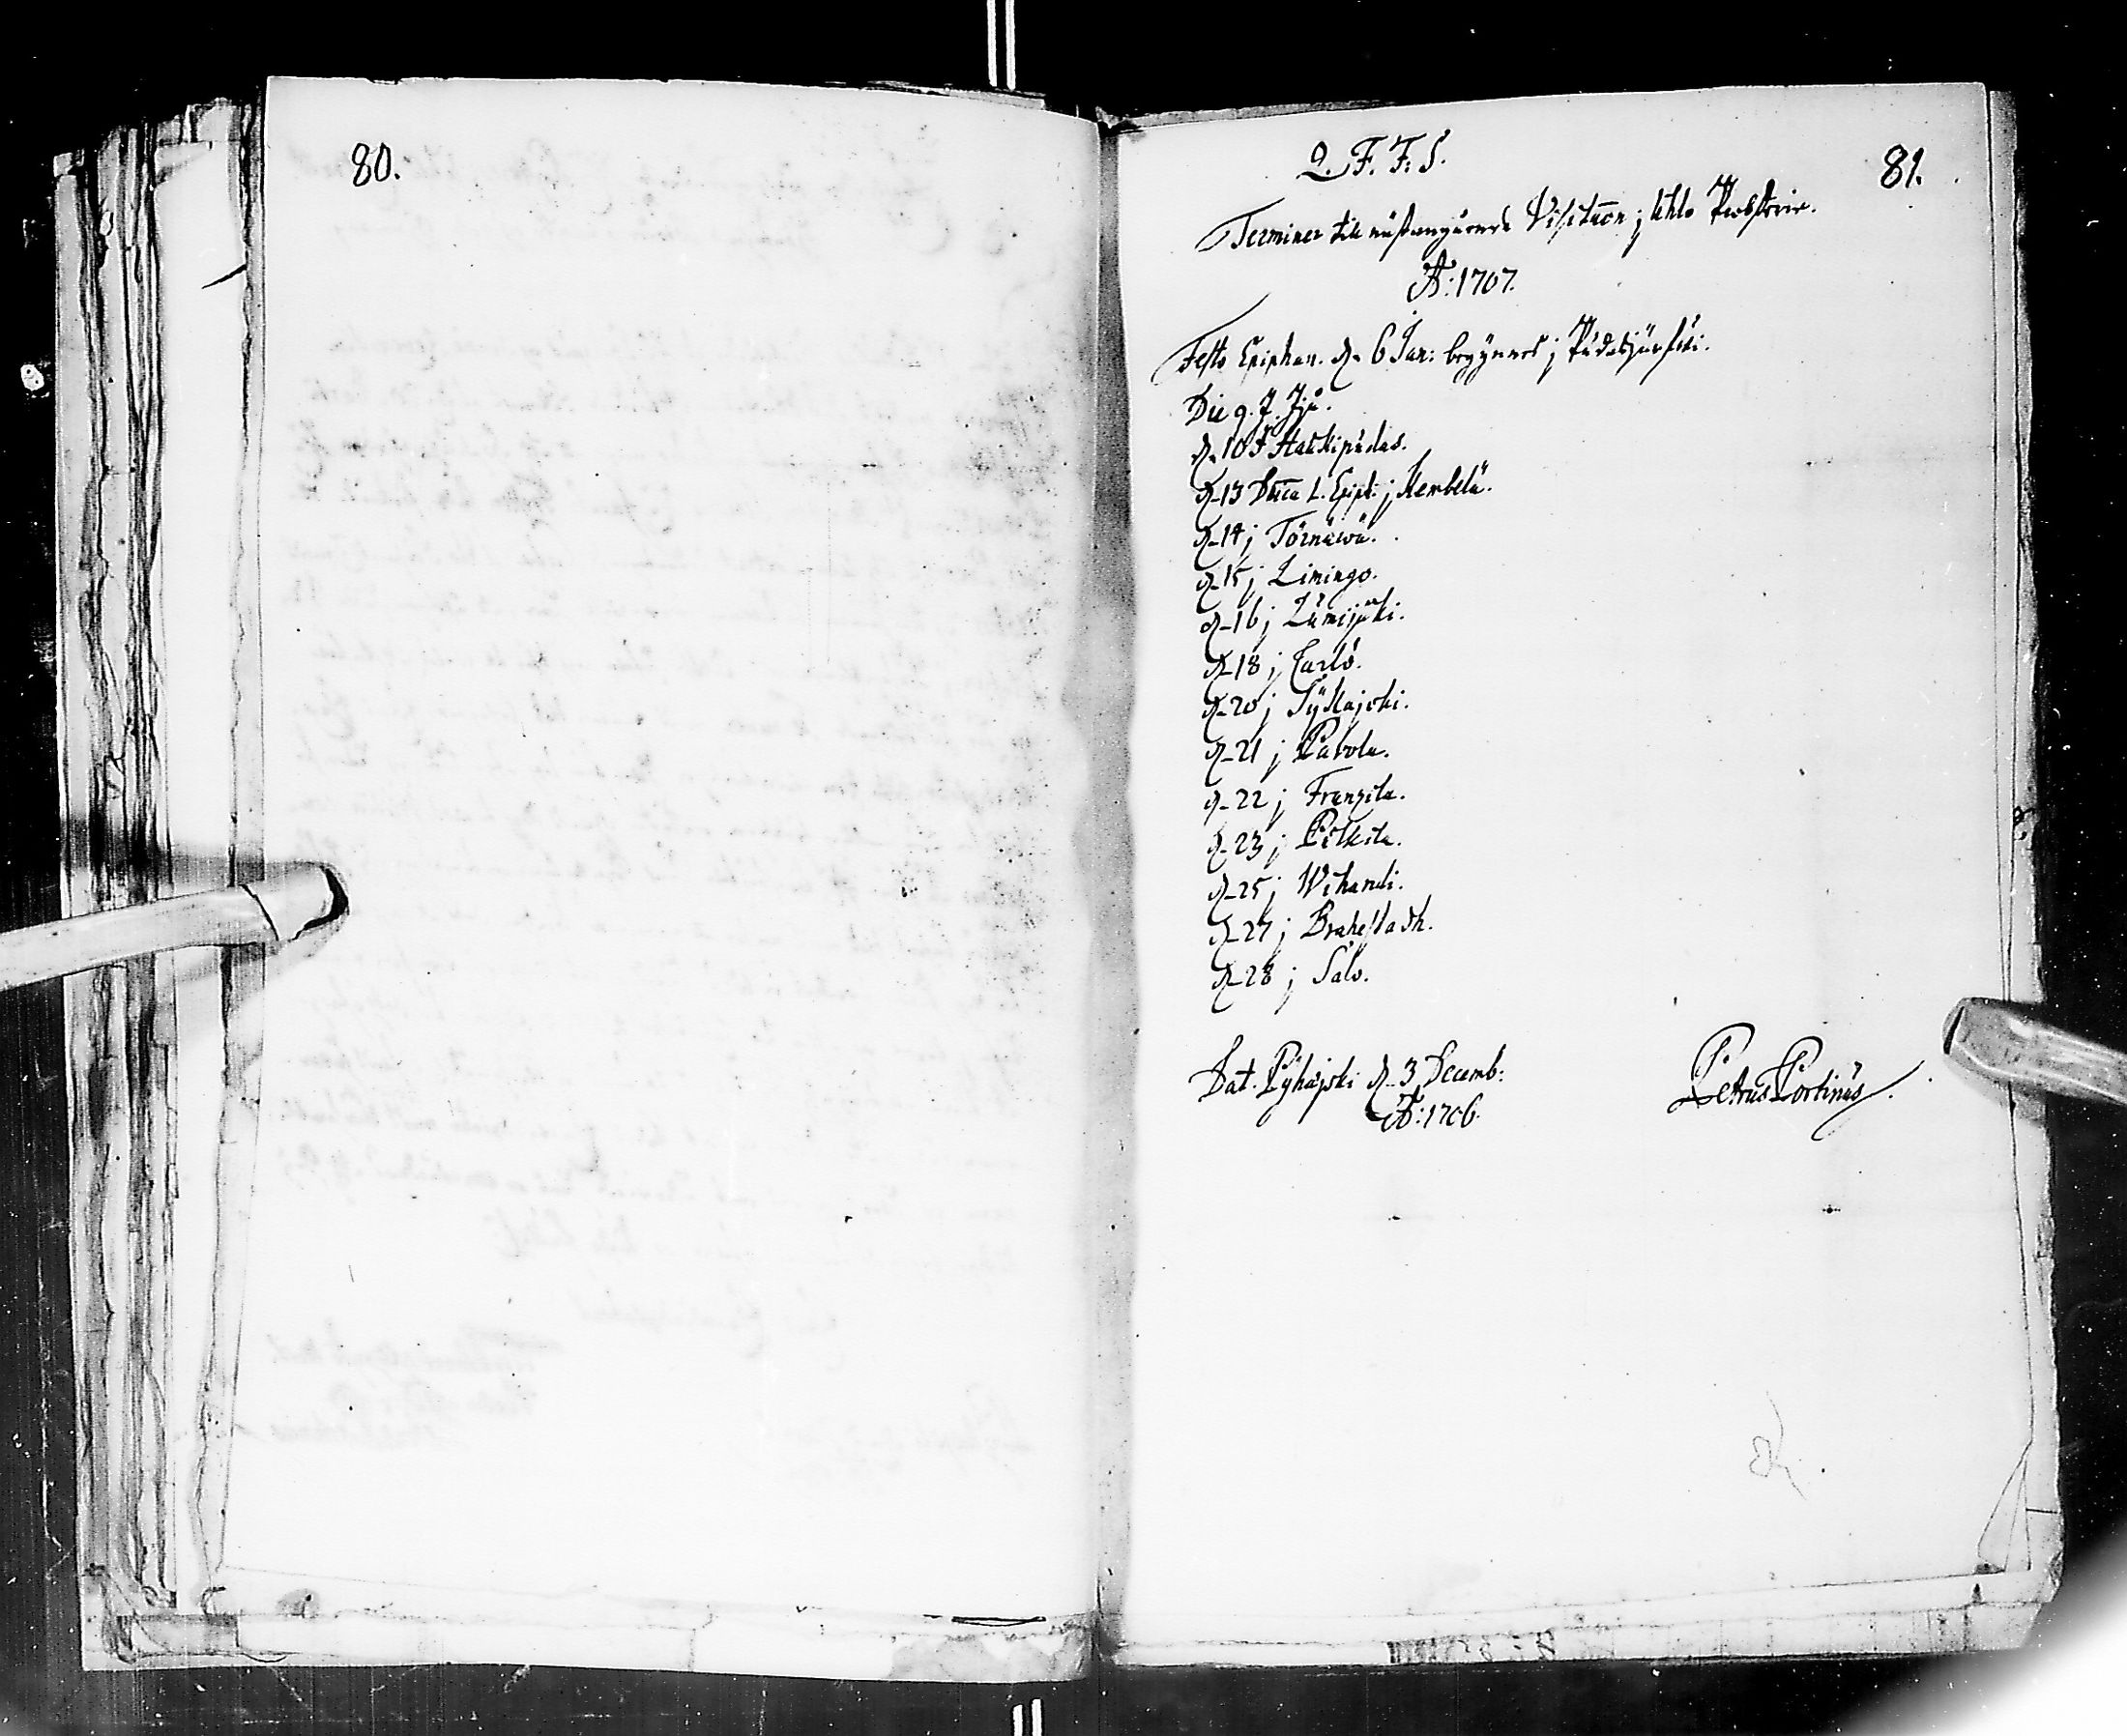 80.
Q. F. F. S.
81.
Terminer till nästangående Visitation j Uhlo Probsterie.
A:o 1707.
Festo Epiphan. d. 6 Jan: begynnes j Pudasjärfwi.
Die 9. J. Ijå.
d. 10 J Haukipudas.
d. 13 Dnica 1. Epiph. j Kembelä.
d. 14 j Törnäwä.
d. 15 j Limingo.
d. 16 j Lumijoki.
d. 18 j Carlö.
d. 20 j Sijkajoki.
d. 21 j Pavola.
d. 22 j Franzila.
d. 23 j Pulkila.
d. 25 j Wihandi.
d. 27 j Brahestadh.
d. 28 j Salo.
Dat. Pyhäjoki d. 3 Decemb:
A:o 1706.
Petrus Portinus.